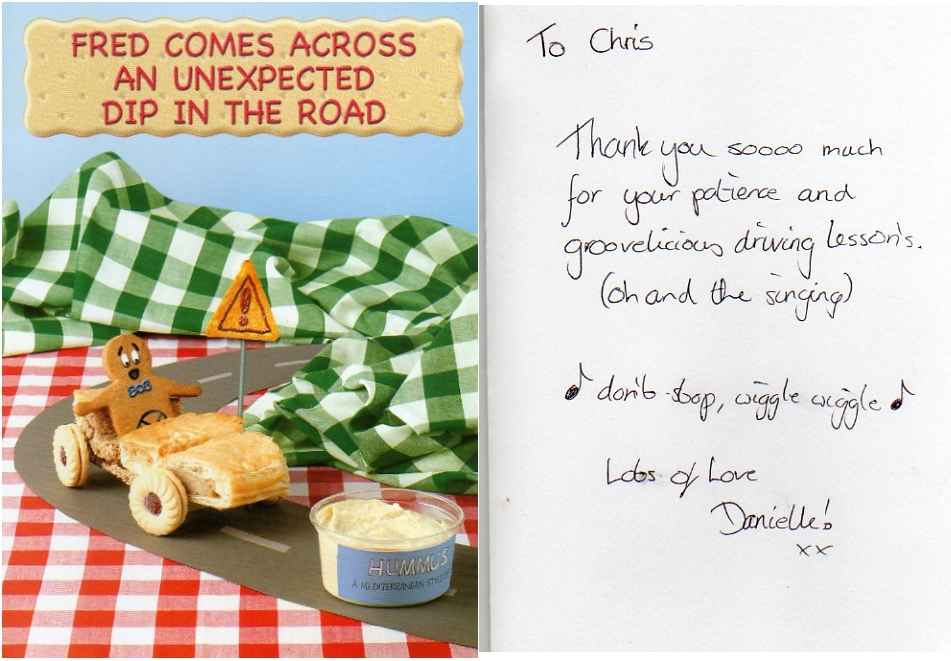 FRED COMES ACROSS
AN UNEXPECTED
DIP IN THE ROAD
!
BOB
HUMMUS
A MEDITERRANEAN STYLE
To Chris
Thank you soooo much
for your patience and
groovelicious driving lesson's.
(oh and the singing)
♪ don't stop, wiggle wiggle ♪
Lots of Love
Danielle!
xx